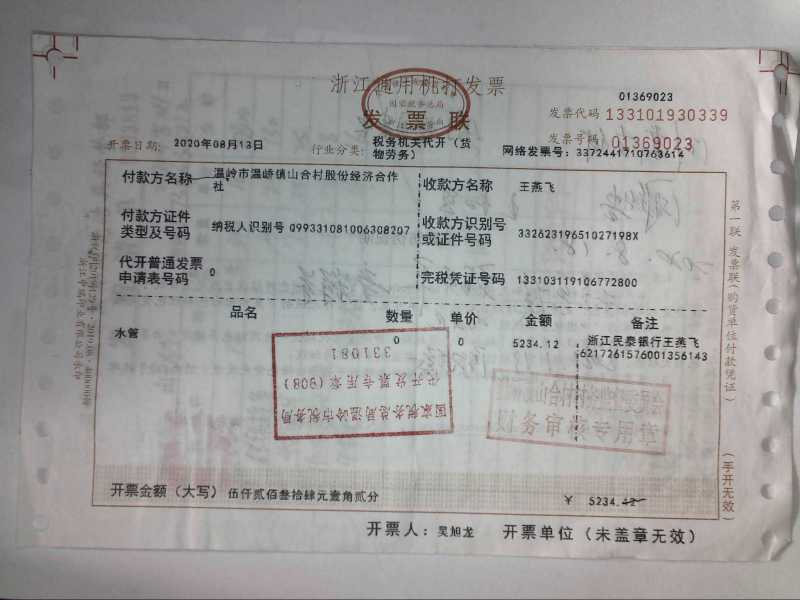 浙江通用机打发票
国家税务总局
发票联
01369023
发票代码 133101930339
发票号码 01369023
开票日期: 2020年08月13日
行业分类: 税务机关代开（货物劳务）
网络发票号: 3372441710763614
付款方名称 温岭市温峤镇山合村股份经济合作社
收款方名称 王燕飞
付款方证件类型及号码 纳税人识别号 Q99331081006308207
收款方识别号或证件号码 33262319651027198X
代开普通发票申请表号码 0
完税凭证号码 133103119106772800
品名 数量 单价 金额 备注
水管 0 0 5234.12 浙江民泰银行王燕飞
6217261576001356143
国家税务总局温岭市税务局
代开发票专用章(908)
331081
财务审核专用章
开票金额（大写） 伍仟贰佰叁拾肆元壹角贰分 ￥ 5234.12
开票人: 吴旭龙 开票单位（未盖章无效）
第一联 发票联(购货单位付款凭证)
(手开无效)